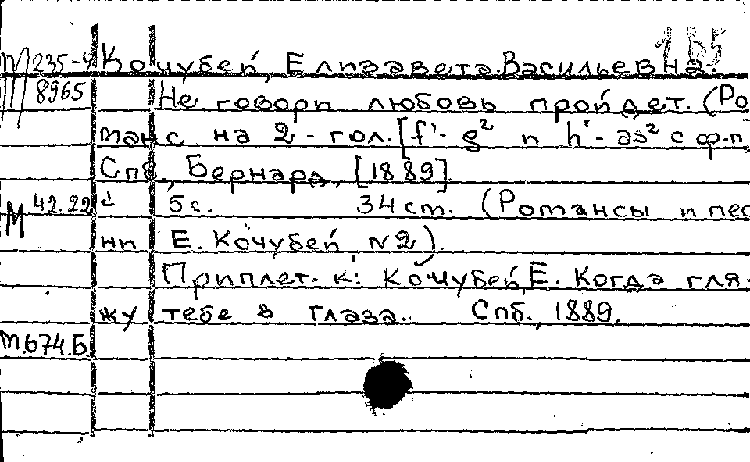 155
М 235-4 Кочубей, Елизавета Васильевна.
8965 Не говори любовь пройдет. (Ро
манс на 2-гол. [f'-g² и h'-as² с ф-п
Спб., Бернард, [1889]
М 42.22 5с. 34 ст. (Романсы и пес
ни Е. Кочубей №2).
Приплет. к: Кочубей, Е. Когда гля-
жу тебе в глаза.. Спб., 1889.
М.674.Б